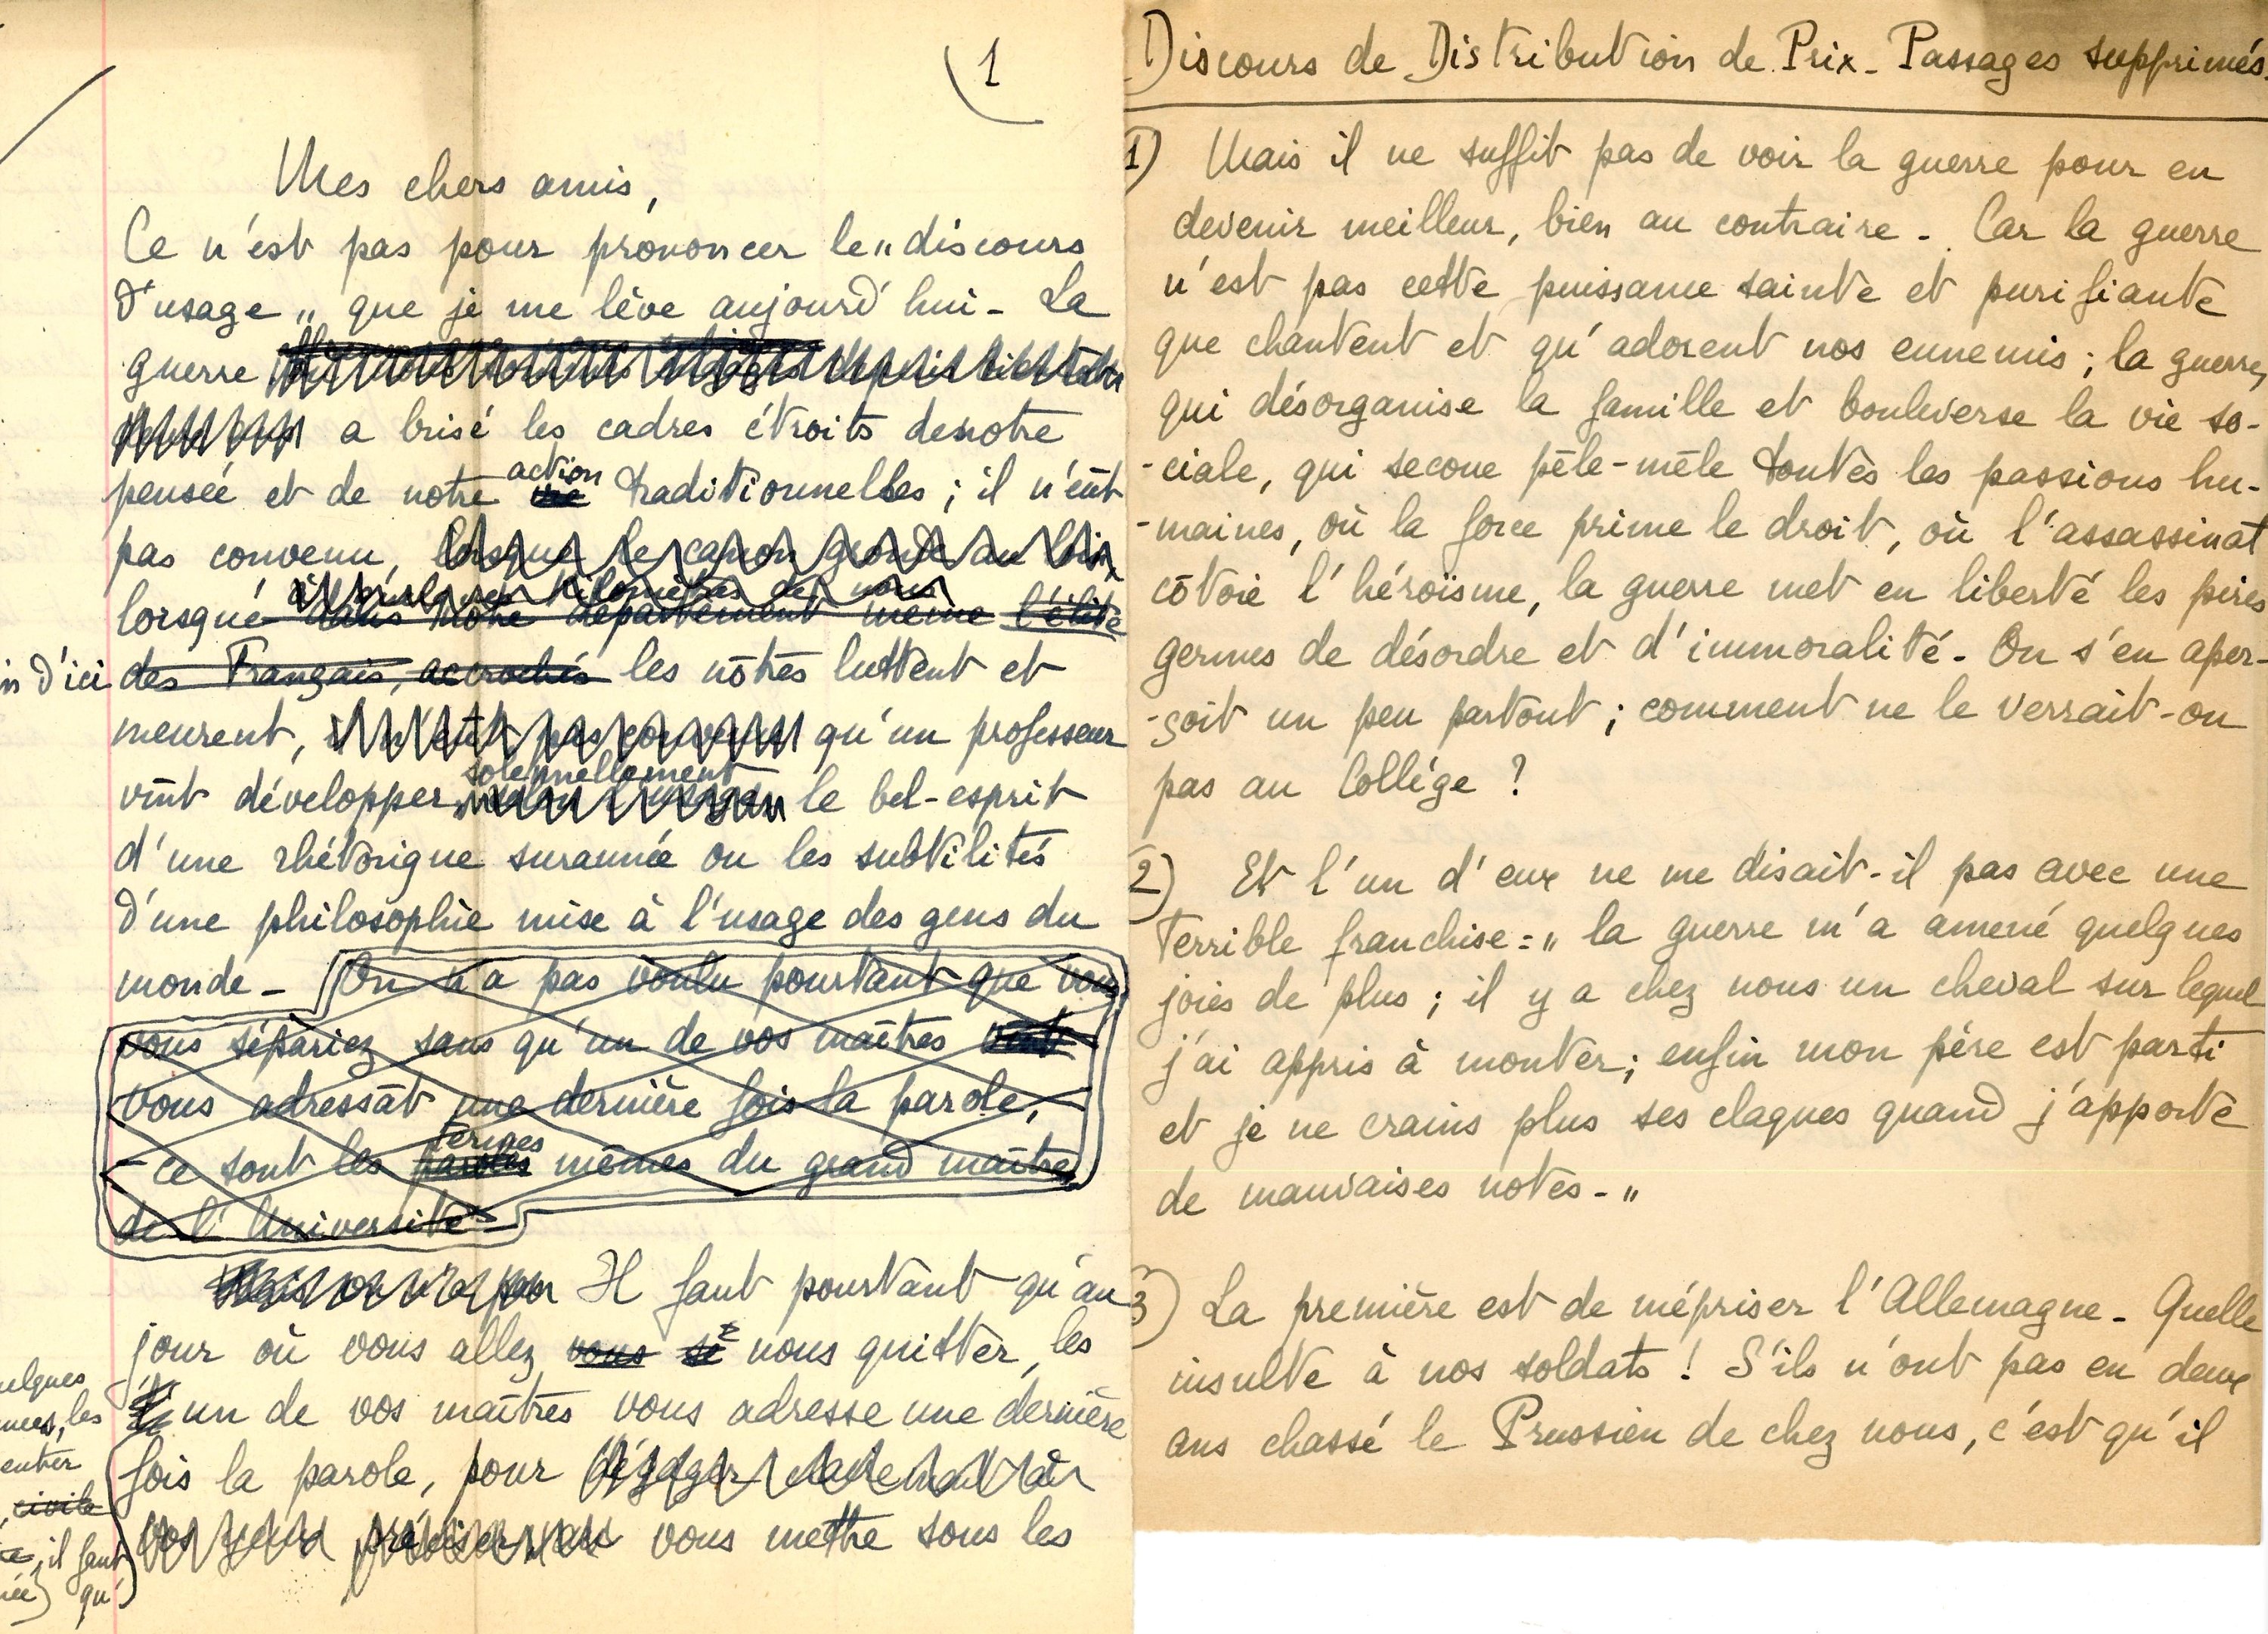 1
Mes chers amis,
Ce n'est pas pour prononcer le „discours
d'usage„ que je me lève aujourd'hui - La
guerre
a brisé les cadres étroits de notre
action
pensée et de notre vie traditionnelles ; il n'eût
pas convenu, lorsque le canon gronde au loin
kilomètres de nous
lorsque dans notre département même l'élite
n d'ici des Français, accrochés les nôtres luttent et
meurent, il n'eût pas convenu qu'un professeur
solennellement
vînt développer le bel-esprit
d'une rhétorique surannée ou les subtilités
d'une philosophie mise à l'usage des gens du
monde - On n'a pas voulu pourtant que vous
vous sépariez sans qu'un de vos maîtres vînt
vous adressât une dernière fois la parole,
termes
- ce sont les paroles mêmes du grand maître
de l'Université -
Il faut pourtant qu'au
jour où vous allez vous sé nous quitter, les
un de vos maîtres vous adresse une dernière
fois la parole, pour dégager clairement à
vos yeux préciser vous mettre sous les
uelques
les
entrer
civile
il faut
qu'
Discours de Distribution de Prix - Passages supprimés.
1) Mais il ne suffit pas de voir la guerre pour en
devenir meilleur, bien au contraire - Car la guerre
n'est pas cette puissance sainte et purifiante
que chantent et qu'adorent nos ennemis ; la guerre,
qui désorganise la famille et bouleverse la vie so-
-ciale, qui secoue pêle-mêle toutes les passions hu-
-maines, où la force prime le droit, où l'assassinat
côtoie l'héroïsme, la guerre met en liberté les pires
germes de désordre et d'immoralité - On s'en aper-
-çoit un peu partout ; comment ne le verrait-on
pas au Collège ?
2) Et l'un d'eux ne me disait-il pas avec une
terrible franchise : „ la guerre m'a amené quelques
joies de plus ; il y a chez nous un cheval sur lequel
j'ai appris à monter ; enfin mon père est parti
et je ne crains plus ses claques quand j'apporte
de mauvaises notes - „
3) La première est de mépriser l'Allemagne - Quelle
insulte à nos soldats ! S'ils n'ont pas en deux
ans chassé le Prussien de chez nous, c'est qu'il